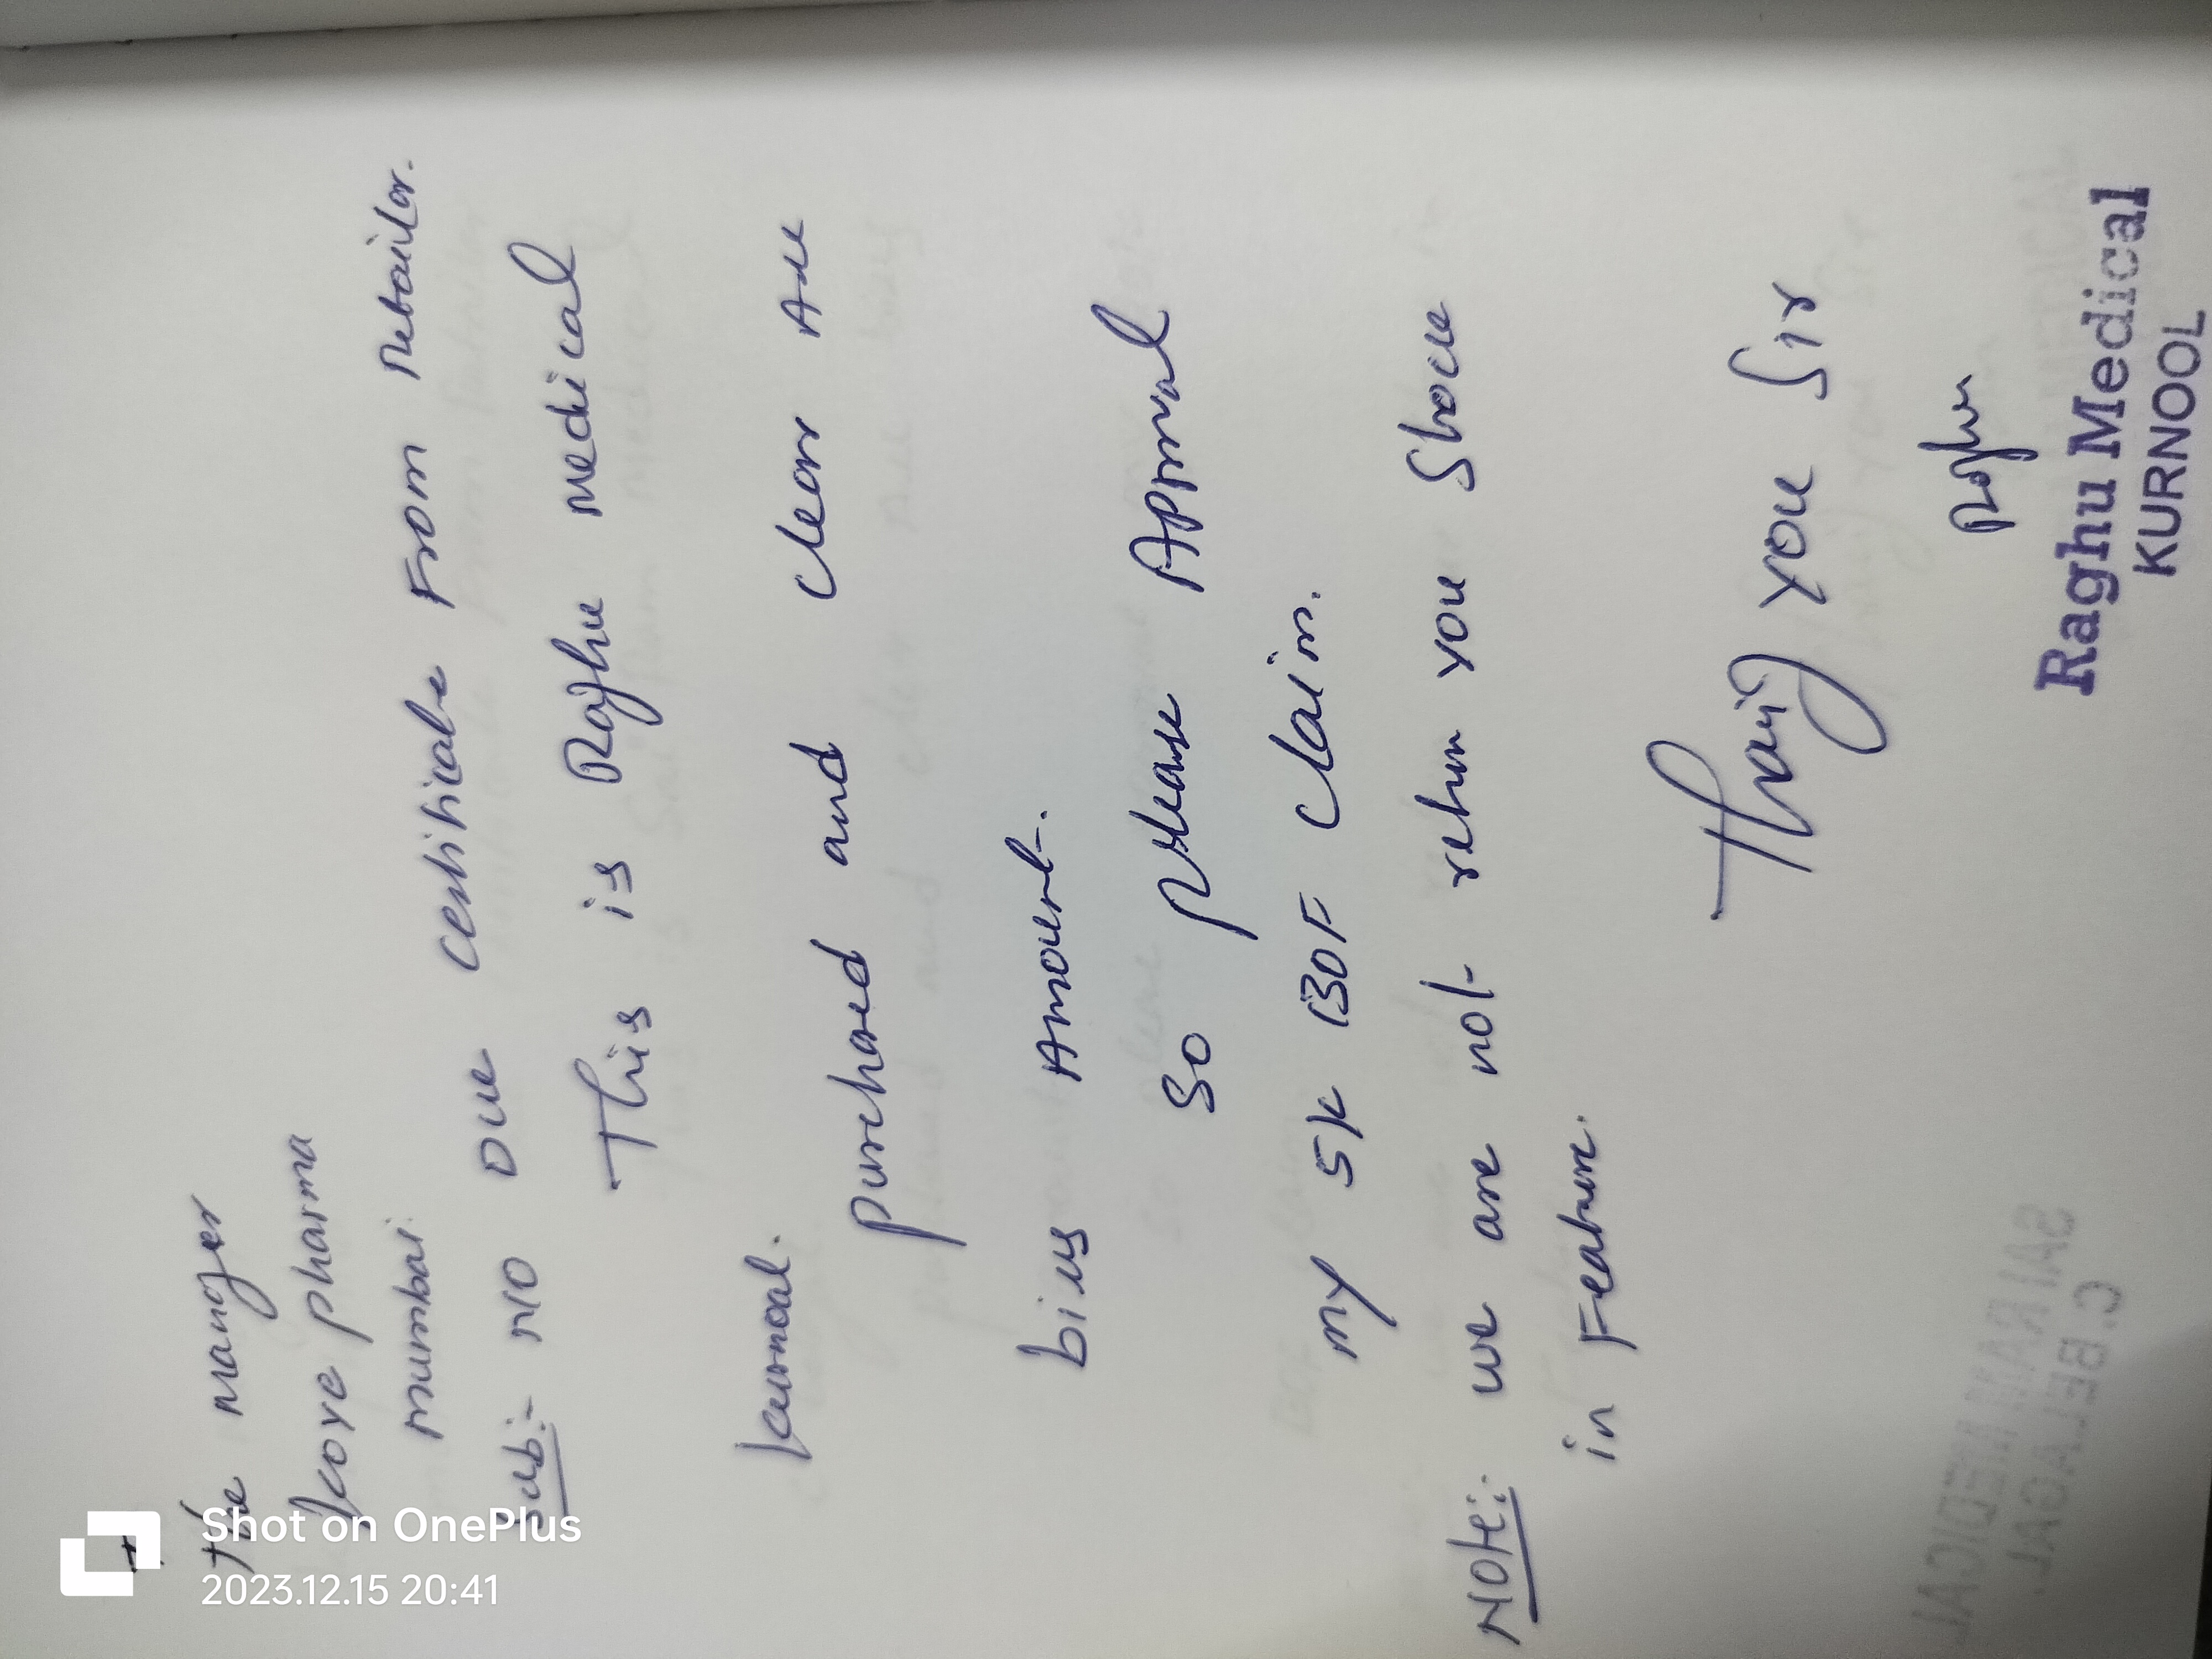 The manger
Koye pharma
mumbai.
Sub:- NO Due certificate From Retailer.
This is Raghu medical
kurnool.
purchased and clear All
bius Amount.
So please Approval
my 5k BOF claim.
Note:- we are not return you Stock
in Feature.
Thanq you Sir
Raghu
Raghu Medical
KURNOOL
SAI RAM MEDICAL
C. BELAGAL
Shot on OnePlus
2023.12.15 20:41